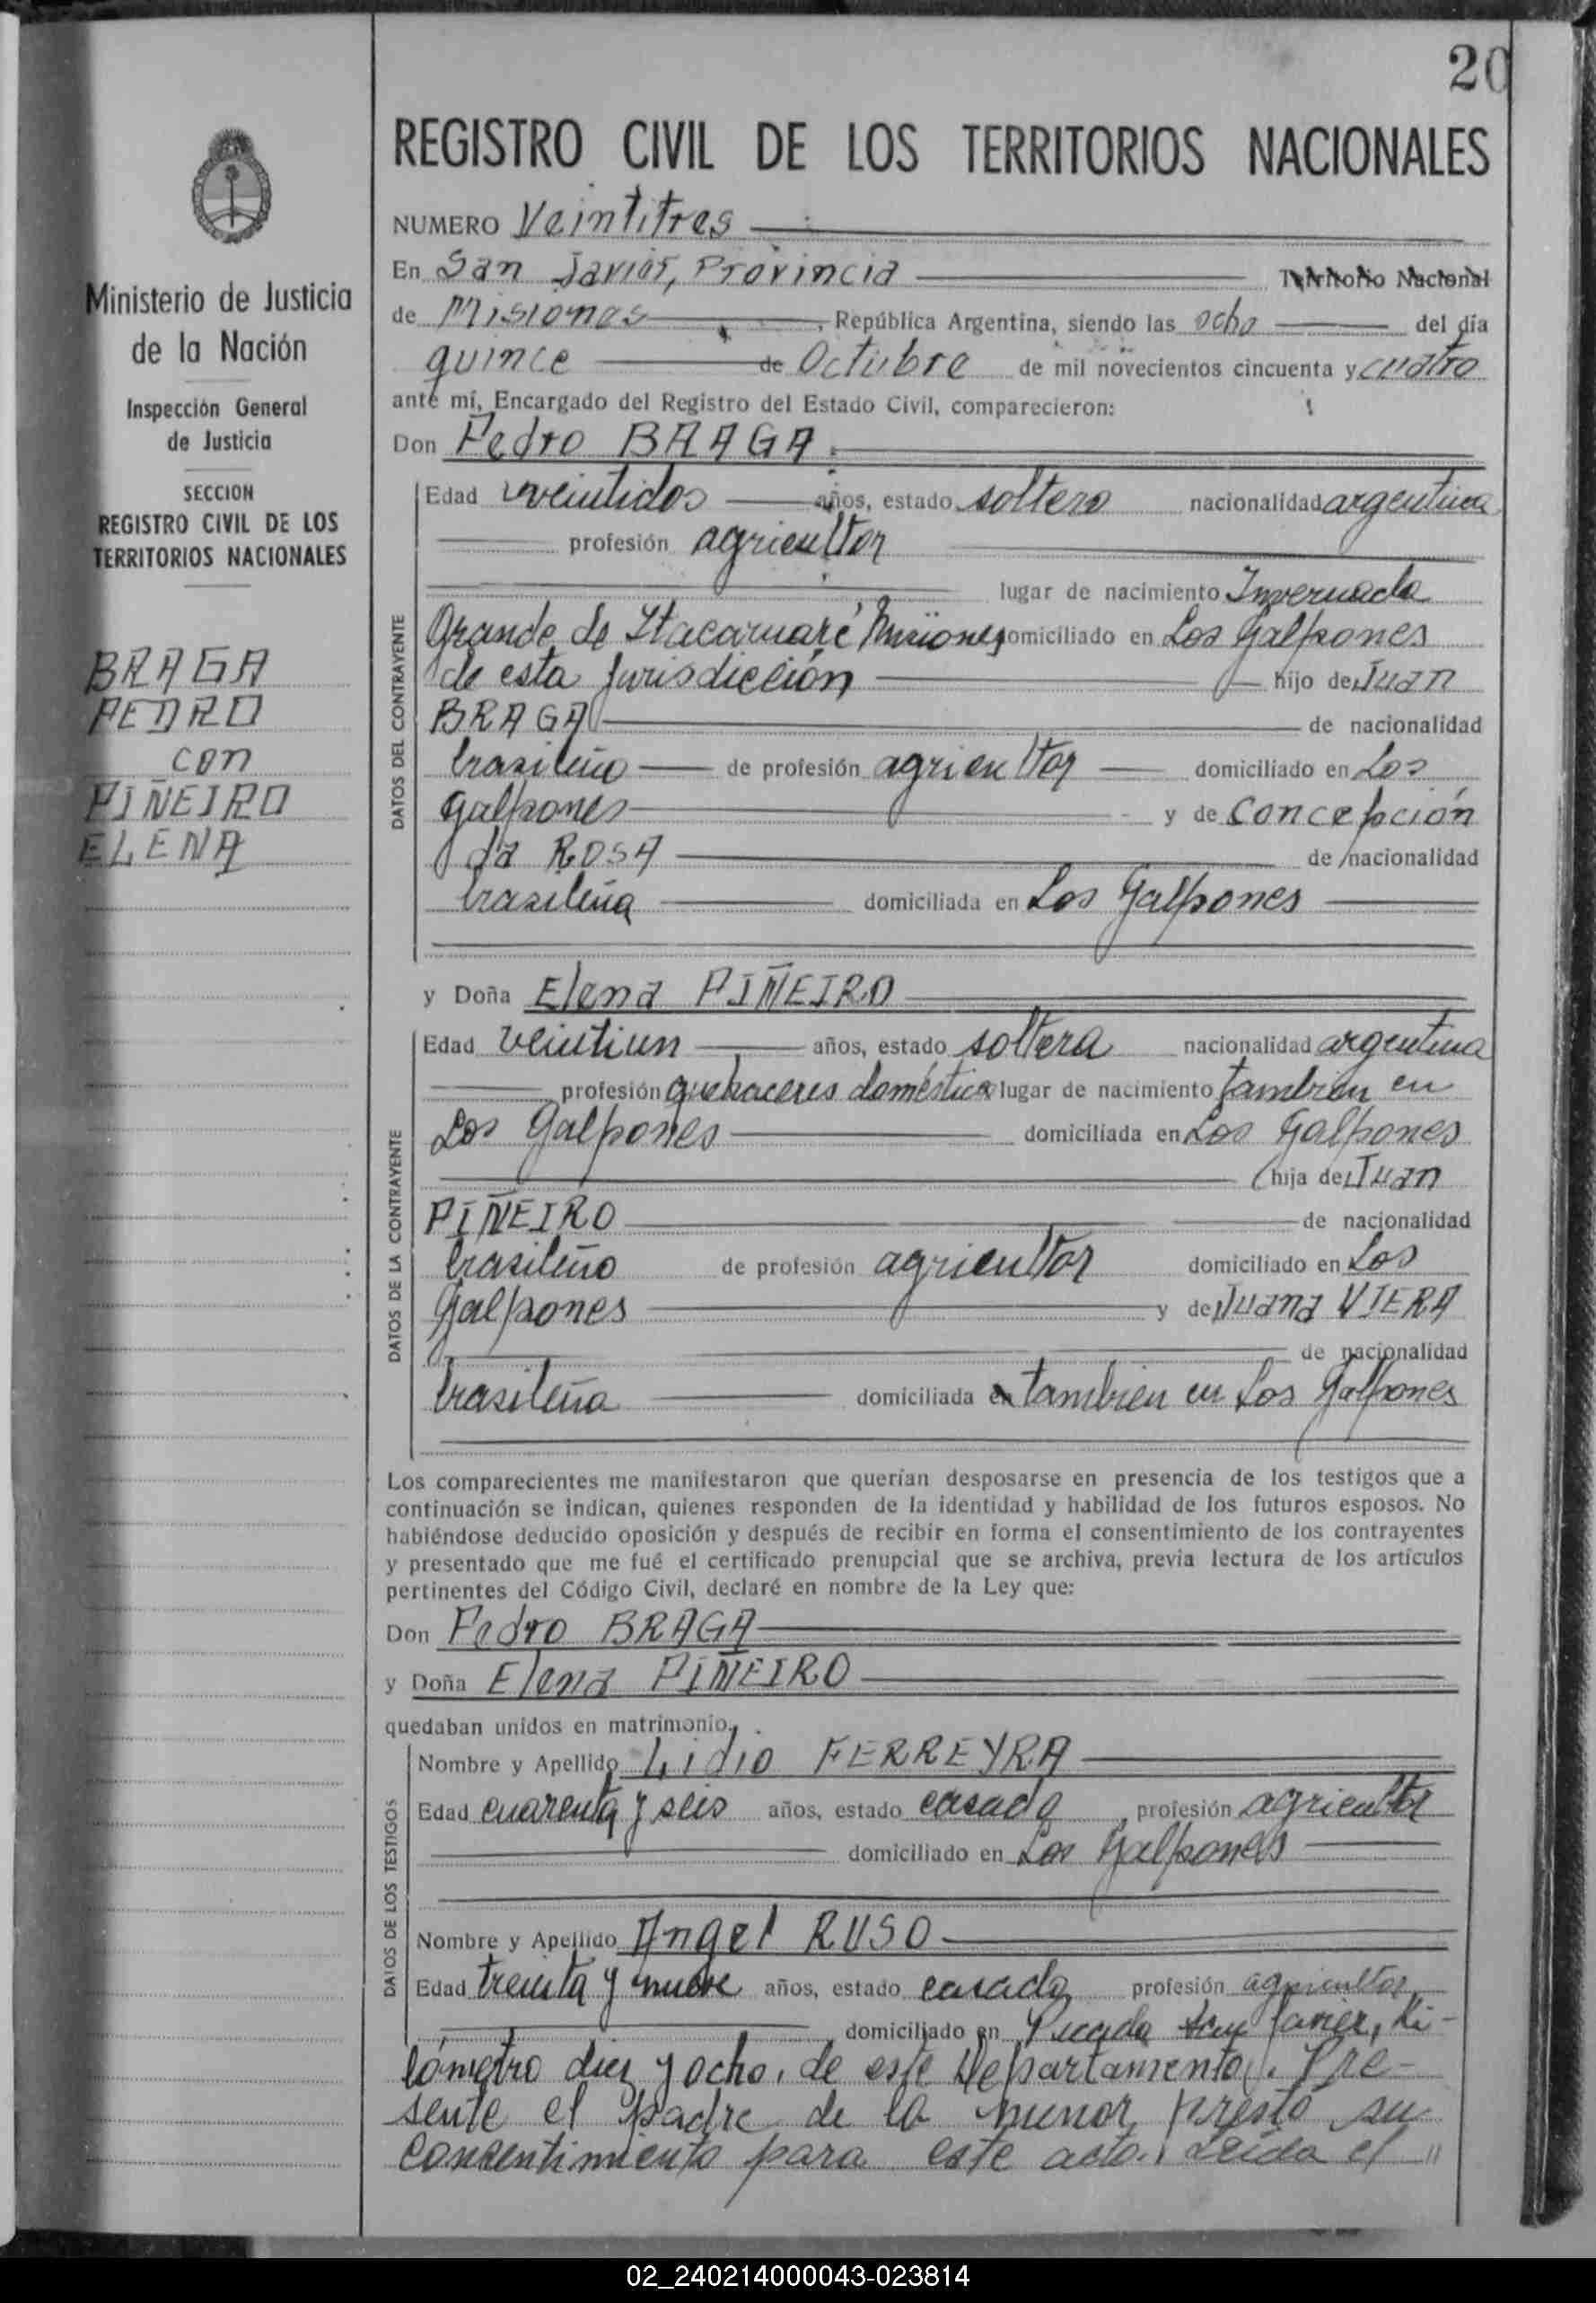 20
REGISTRO CIVIL DE LOS TERRITORIOS NACIONALES
NUMERO Veintitres
En San Javier, Provincia Territorio Nacional
de Misiones, República Argentina, siendo las ocho del día
quince de Octubre de mil novecientos cincuenta y cuatro
ante mí, Encargado del Registro del Estado Civil, comparecieron:
Don Pedro BRAGA
Edad veintidos años, estado soltero nacionalidad argentina
profesión agricultor
lugar de nacimiento Invernada
Grande de Itacaruaré Misiones domiciliado en Los Galpones
de esta jurisdicción hijo de Juan
BRAGA de nacionalidad
brasileño de profesión agricultor domiciliado en Los
Galpones y de Concepción
da ROSA de nacionalidad
brasileña domiciliada en Los Galpones
DATOS DEL CONTRAYENTE
y Doña Elena PIÑEIRO
Edad veintiun años, estado soltera nacionalidad argentina
profesión quehaceres domésticos lugar de nacimiento tambien en
Los Galpones domiciliada en Los Galpones
hija de Juan
PIÑEIRO de nacionalidad
brasileño de profesión agricultor domiciliado en Los
Galpones y de Juana VIERA
de nacionalidad
brasileña domiciliada en tambien en Los Galpones
DATOS DE LA CONTRAYENTE
Los comparecientes me manifestaron que querían desposarse en presencia de los testigos que a
continuación se indican, quienes responden de la identidad y habilidad de los futuros esposos. No
habiéndose deducido oposición y después de recibir en forma el consentimiento de los contrayentes
y presentado que me fué el certificado prenupcial que se archiva, previa lectura de los artículos
pertinentes del Código Civil, declaré en nombre de la Ley que:
Don Pedro BRAGA
y Doña Elena PIÑEIRO
quedaban unidos en matrimonio.
Nombre y Apellido Lidio FERREYRA
Edad cuarenta y seis años, estado casado profesión agricultor
domiciliado en Los Galpones
Nombre y Apellido Angel RUSO
Edad treinta y nueve años, estado casado profesión agricultor
domiciliado en Picada San Javier, Ki-
lómetro diez y ocho, de este Departamento. Pre-
sente el padre de la menor, prestó su
consentimiento para este acto. Leída el "
DATOS DE LOS TESTIGOS
Ministerio de Justicia
de la Nación
Inspección General
de Justicia
SECCION
REGISTRO CIVIL DE LOS
TERRITORIOS NACIONALES
BRAGA
PEDRO
con
PIÑEIRO
ELENA
02_240214000043-023814